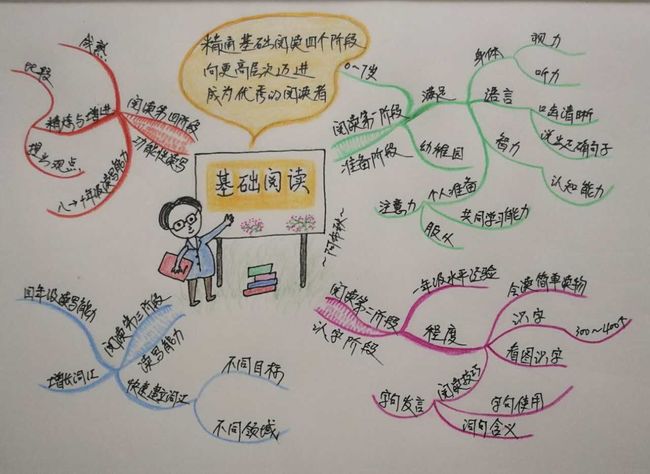 精通基础阅读四个阶段
向更高层次迈进
成为优秀的阅读者
基础阅读
阅读第一阶段
准备阶段
0~7岁
满足
身体
视力
听力
语言
口齿清晰
说出正确句子
智力
认知能力
幼稚园
个人准备
注意力
共同学习能力
服从
阅读第二阶段
认字阶段
一年级水平经验
程度
会读简单读物
识字
300~400个
看图识字
阅读技巧
字句使用
词句含义
字句发言
阅读第三阶段
读写能力
四年级读写能力
增长词汇
快速建立词汇
不同目标
不同领域
阅读第四阶段
功能性读写
成熟
精炼与增进
比较
提出观点
八~十年级读写能力